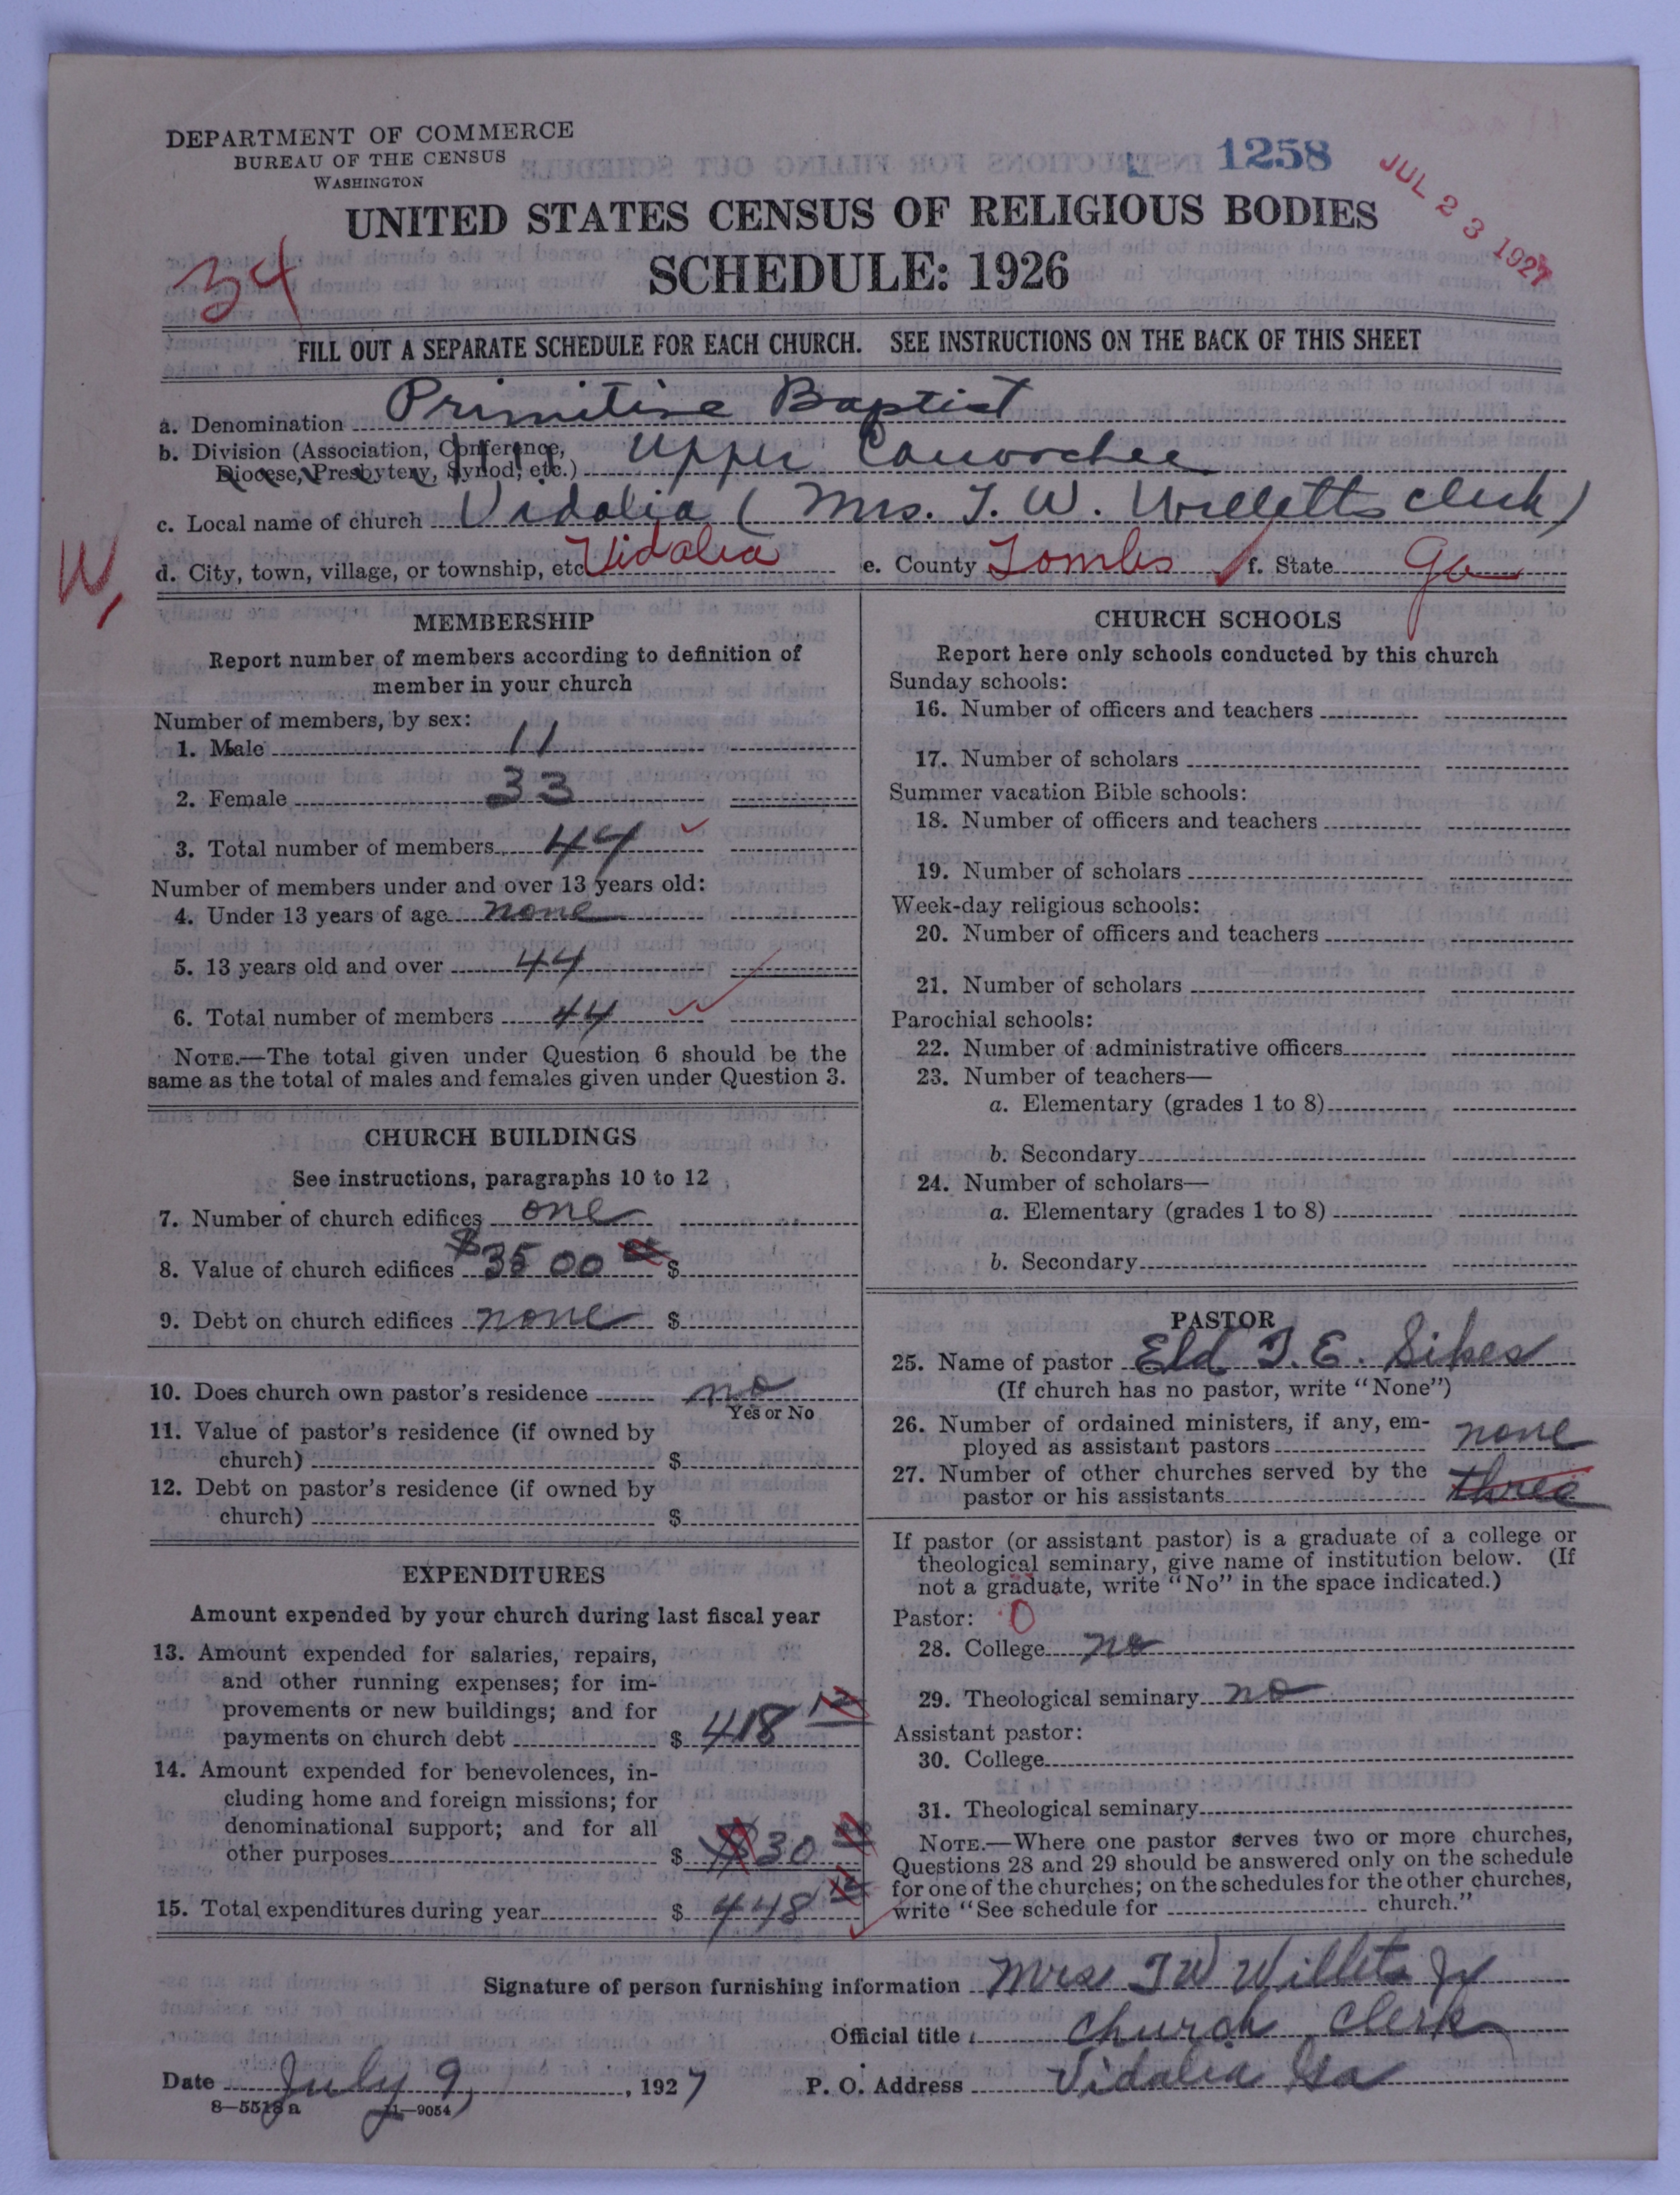 DEPARTMENT OF COMMERCE
BUREAU OF THE CENSUS
WASHINGTON
1258
JUL 23 1927
UNITED STATES CENSUS OF RELIGIOUS BODIES
SCHEDULE: 1926
34
FILL OUT A SEPARATE SCHEDULE FOR EACH CHURCH. SEE INSTRUCTIONS ON THE BACK OF THIS SHEET
a. Denomination Primitive Baptist
b. Division (Association, Conference,
Diocese, Presbytery, Synod, etc.) Upper Canoochee
c. Local name of church Vidalia (Mrs. T. W. Willetts clerk)
W,
d. City, town, village, or township, etc Vidalia e. County Tombs f. State Ga
MEMBERSHIP
Report number of members according to definition of
member in your church
Number of members, by sex:
1. Male 11
2. Female 33
3. Total number of members 44
Number of members under and over 13 years old:
4. Under 13 years of age none
5. 13 years old and over 44
6. Total number of members 44
NOTE.—The total given under Question 6 should be the
same as the total of males and females given under Question 3.
CHURCH BUILDINGS
See instructions, paragraphs 10 to 12
7. Number of church edifices one
8. Value of church edifices $3500 00 $
9. Debt on church edifices none $
10. Does church own pastor's residence no
Yes or No
11. Value of pastor's residence (if owned by
church) $
12. Debt on pastor's residence (if owned by
church) $
EXPENDITURES
Amount expended by your church during last fiscal year
13. Amount expended for salaries, repairs,
and other running expenses; for im-
provements or new buildings; and for
payments on church debt $ 418 12
14. Amount expended for benevolences, in-
cluding home and foreign missions; for
denominational support; and for all
other purposes $ $30 00
15. Total expenditures during year $ 448 12
CHURCH SCHOOLS
Report here only schools conducted by this church
Sunday schools:
16. Number of officers and teachers
17. Number of scholars
Summer vacation Bible schools:
18. Number of officers and teachers
19. Number of scholars
Week-day religious schools:
20. Number of officers and teachers
21. Number of scholars
Parochial schools:
22. Number of administrative officers
23. Number of teachers—
a. Elementary (grades 1 to 8)
b. Secondary
24. Number of scholars—
a. Elementary (grades 1 to 8)
b. Secondary
PASTOR
25. Name of pastor Eld T. E. Sikes
(If church has no pastor, write "None")
26. Number of ordained ministers, if any, em-
ployed as assistant pastors none
27. Number of other churches served by the
pastor or his assistants three
If pastor (or assistant pastor) is a graduate of a college or
theological seminary, give name of institution below. (If
not a graduate, write "No" in the space indicated.)
Pastor: 0
28. College no
29. Theological seminary no
Assistant pastor:
30. College
31. Theological seminary
NOTE.—Where one pastor serves two or more churches,
Questions 28 and 29 should be answered only on the schedule
for one of the churches; on the schedules for the other churches,
write "See schedule for church."
Signature of person furnishing information Mrs T W Willets Jr
Official title church clerk
Date July 9, 1927 P. O. Address Vidalia Ga
8—5518 a 11—9054